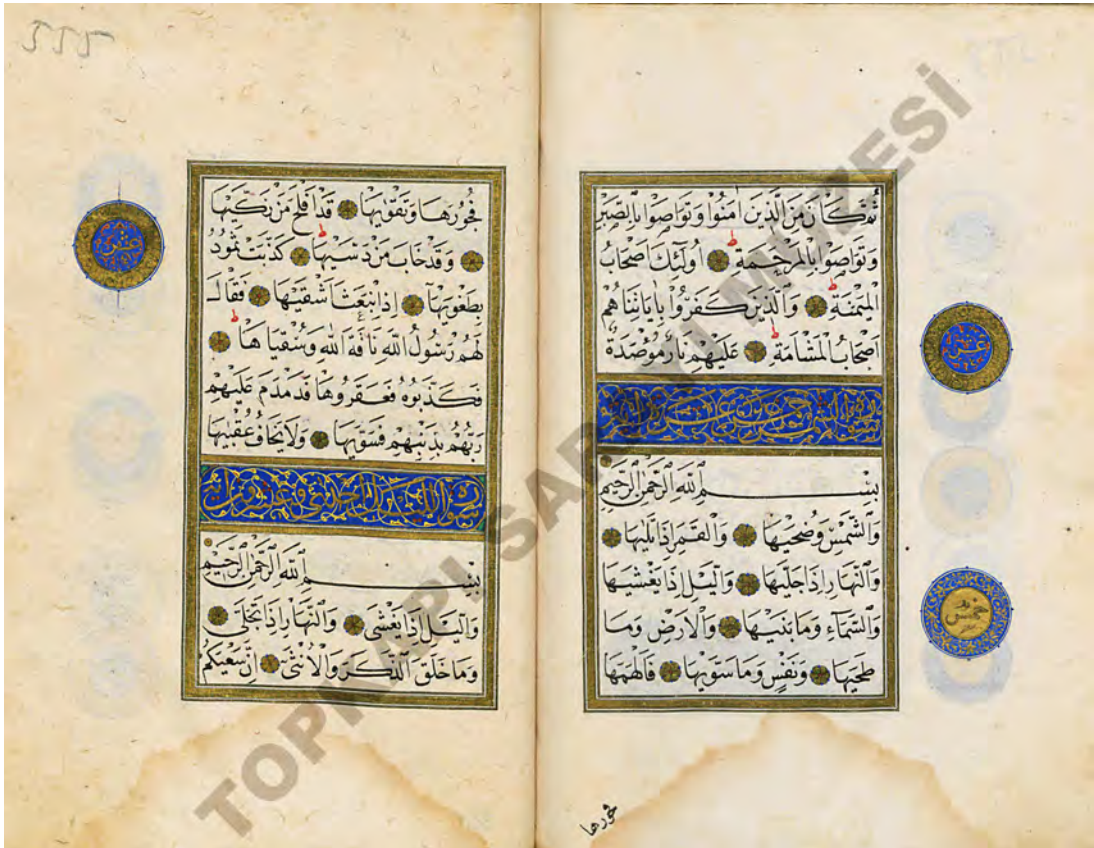 ثُمَّ كَانَ مِنَ الَّذِينَ اٰمَنُوا وَتَوَاصَوْا بِالصَّبْرِ
وَتَوَاصَوْا بِالْمَرْحَمَةِ ۞ اُولٰٓئِكَ اَصْحَابُ
الْمَيْمَنَةِ ۞ وَالَّذِينَ كَفَرُوا بِاٰيَاتِنَا هُمْ
اَصْحَابُ الْمَشْاَمَةِ ۞ عَلَيْهِمْ نَارٌ مُؤْصَدَةٌ
سورة الشمس
بِسْمِ اللّٰهِ الرَّحْمٰنِ الرَّحِيمِ
وَالشَّمْسِ وَضُحٰيهَا ۞ وَالْقَمَرِ اِذَا تَلٰيهَا ۞
وَالنَّهَارِ اِذَا جَلّٰيهَا ۞ وَالَّيْلِ اِذَا يَغْشٰيهَا
وَالسَّمَٓاءِ وَمَا بَنٰيهَا ۞ وَالْاَرْضِ وَمَا
طَحٰيهَا ۞ وَنَفْسٍ وَمَا سَوّٰيهَا ۞ فَاَلْهَمَهَا
فجورها
خمس
عشر
فُجُورَهَا وَتَقْوٰيهَا ۞ قَدْ اَفْلَحَ مَنْ زَكّٰيهَا
۞ وَقَدْ خَابَ مَنْ دَسّٰيهَا ۞ كَذَّبَتْ ثَمُودُ
بِطَغْوٰيهَٓا ۞ اِذِ انْبَعَثَ اَشْقٰيهَا ۞ فَقَالَ
لَهُمْ رَسُولُ اللّٰهِ نَاقَةَ اللّٰهِ وَسُقْيَاهَا ۞
فَكَذَّبُوهُ فَعَقَرُوهَا فَدَمْدَمَ عَلَيْهِمْ
رَبُّهُمْ بِذَنْبِهِمْ فَسَوّٰيهَا ۞ وَلَا يَخَافُ عُقْبٰيهَا
سورة الليل
بِسْمِ اللّٰهِ الرَّحْمٰنِ الرَّحِيمِ
وَالَّيْلِ اِذَا يَغْشٰى ۞ وَالنَّهَارِ اِذَا تَجَلّٰى ۞
وَمَا خَلَقَ الذَّكَرَ وَالْاُنْثٰى ۞ اِنَّ سَعْيَكُمْ
عشر
TOPKAPI SARAYI MÜZESİ